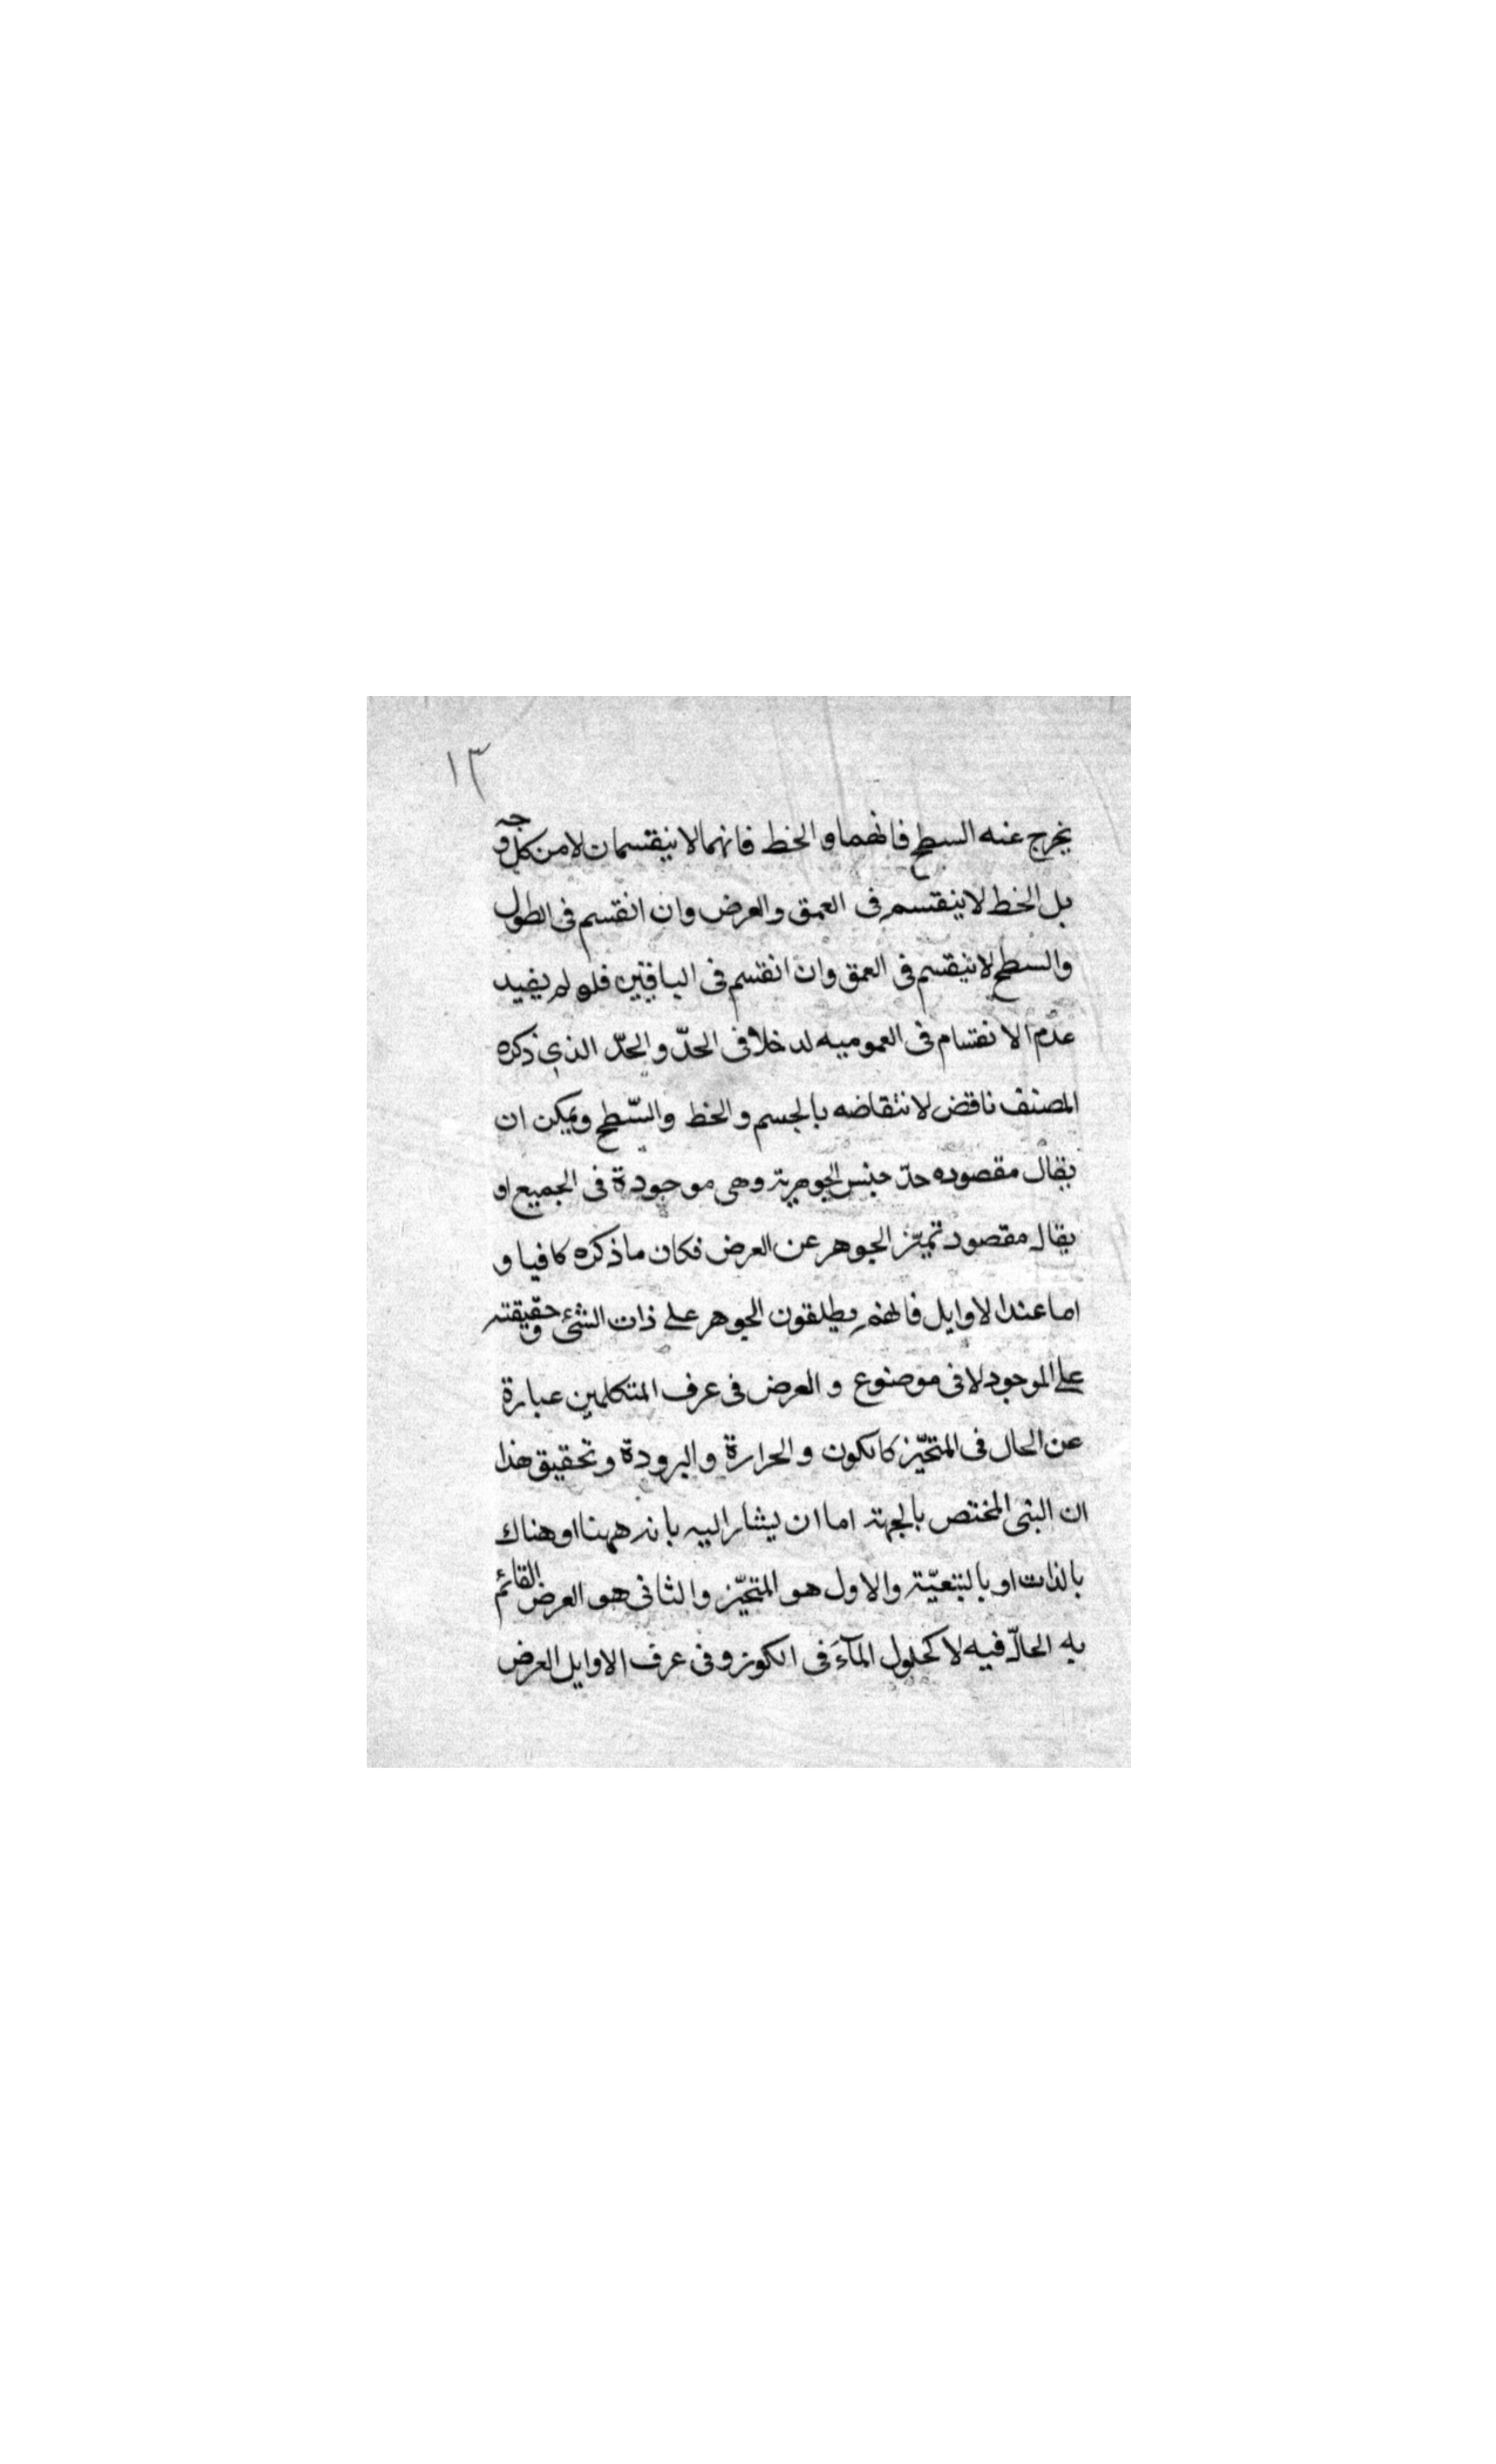 ١٣
يخرج عنه السطح فانهما و الخط فانهما لا ينقسمان لا من كل وجه
بل الخط لا ينقسم فى العمق والعرض وان انقسم فى الطول
والسطح لا ينقسم فى العمق وان انقسم فى الباقين فلو لم يفيد
عدم الانقسام فى العموميه لدخلا فى الحدّ والحدّ الذي ذكره
المصنف ناقض لانتقاضه بالجسم و الخط والسّطح ويمكن ان
يقال مقصوده حدّ جنس الجوهرية وهى موجودة فى الجميع او
يقال مقصود تميّز الجوهر عن العرض فكان ما ذكره كافيا و
اما عند الاوايل فانهم يطلقون الجوهر على ذات الشئ وحقيقته
على الموجود لا فى موضوع و العرض فى عرف المتكلمين عبارة
عن الحال فى المتحيّز كالكون و الحرارة و البرودة وتحقيق هذا
ان الشى المختص بالجهة اما ان يشار اليه بانه ههنا او هناك
بالذات او بالتبعيّة والاول هو المتحيّز والثانى هو العرض القائم
به الحالّ فيه لا كحلول المآء فى الكوز وفى عرف الاوايل العرض